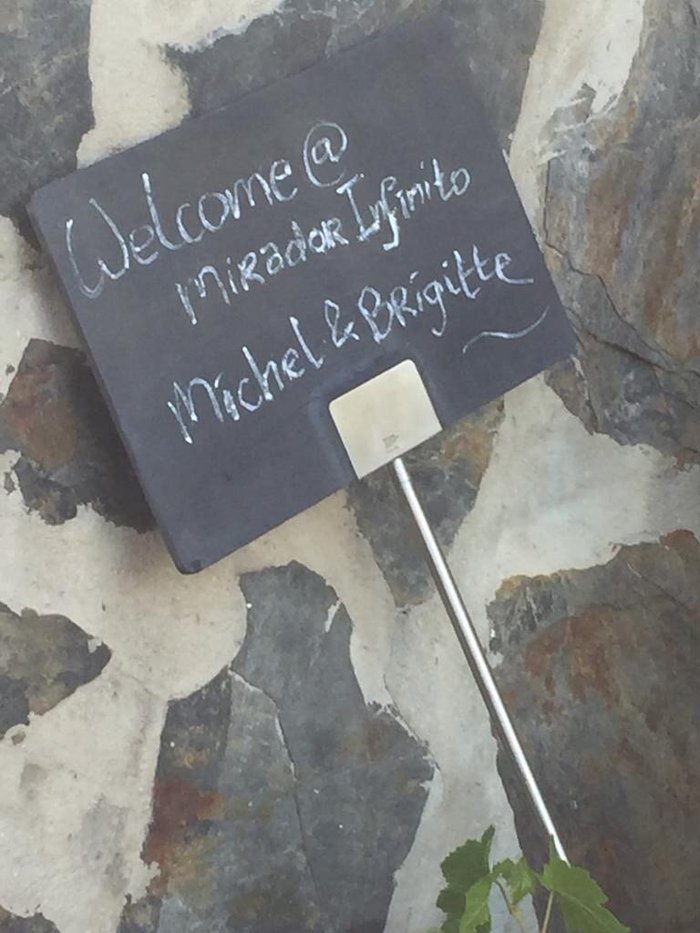 Welcome @
Mirador Infinito
Michel & Brigitte